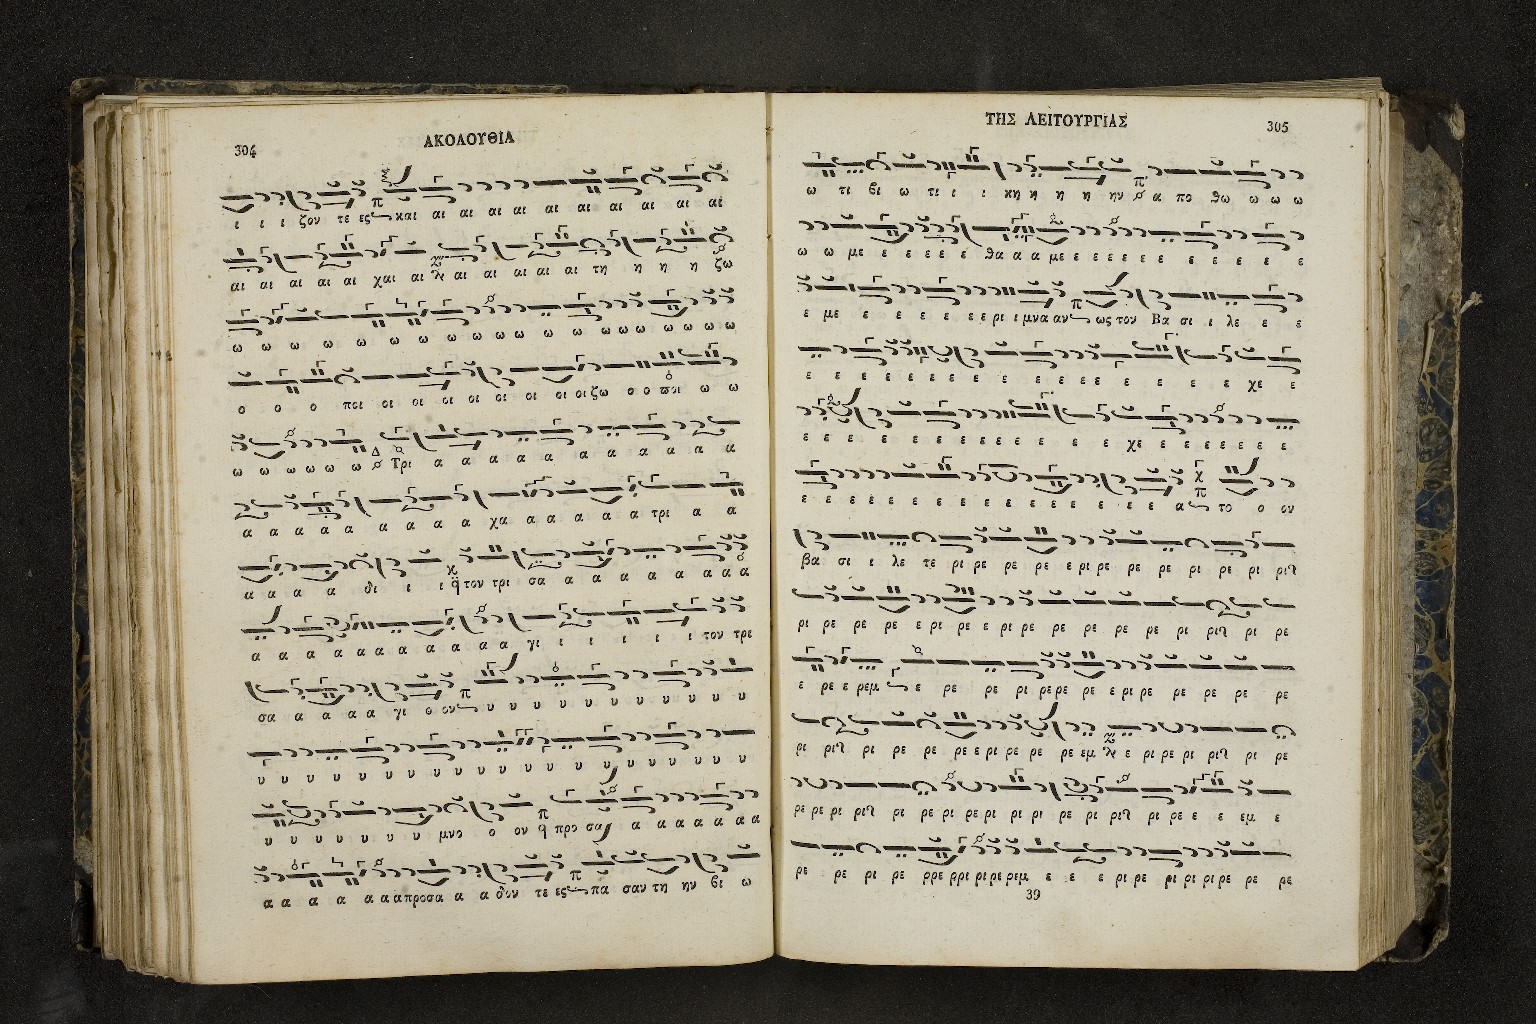 304
ΑΚΟΛΟΥΘΙΑ
ι ι ι ζον τε ες και αι αι αι αι αι αι αι αι αι αι
αι αι αι αι αι χαι αι αι αι αι αι αι τη η η η ζω
ω ω ω ω ω ω ω ω ω ω ω ω ω ω ω ω ω ω
ο ο ο ποι οι οι οι οι οι οι οι οι ζω ο ο ϖοι ω ω
ω ω ω ω ω ω Δ Τρι α α α α α α α α α α
α α α α α α α α χα α α α α α τρι α α
α α α α δι ι ι ᾳ τον τρι σα α α α α α α α α α
α α α α α α α α α α α α γι ι ι ι ι ι τον τρι
σα α α α α γι ο ον υ υ υ υ υ υ υ υ υ υ
υ υ υ υ υ υ υ υ υ υ υ υ υ υ υ υ υ υ υ
υ υ υ υ υ υ υ μνο ο ον προ σα α α α α α α α
α α α α α α α προσα α α δον τε ες πα σαν τη ην βι ω
ΤΗΣ ΛΕΙΤΟΥΡΓΙΑΣ
305
ω τι βι ω τι ι ι κη η η η ην α πο θω ω ω ω
ω ω με ε ε ε ε ε θα α α με ε ε ε ε ε ε ε ε ε ε
ε με ε ε ε ε ε ε ε ρι ι μνα αν ως τον Βα σι ι λε ε ε
ε ε ε ε ε ε ε ε ε ε ε ε ε ε ε ε ε ε χε ε
ε ε ε ε ε ε ε ε ε ε ε ε ε ε χε ε ε ε ε ε ε ε
ε ε ε ε ε ε ε ε ε ε ε ε ε ε ε ε α το ο ον
βα σι ι λε τε ρι ρε ρε ρε ε ρι ρε ρε ρε ρι ρε ρι ρι
ρι ρε ρε ρε ε ρι ρε ε ρι ρε ρε ρε ρε ρι ρι ρι ρε
ε ρε ε ρεμ ε ρε ρε ρι ρε ρε ρε ε ρι ρε ρε ρε ρε ρε
ρι ρι ρι ρε ρε ρε ε ρι ρε ρε ρε εμ ε ρι ρε ρι ρι ρι ρε
ρε ρε ρι ρι ρι ρε ρι ρε ρι ρι ρι ρε ρι ρι ρι ρε ε ε εμ ε
ρε ρε ρι ρε ρρε ρρι ρι ρε ρεμ ε ε ε ρι ρε ρι ρι ρι ρε ρε ρε
39